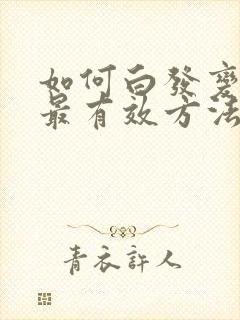 如何白發變
最有效方法
青衣許人